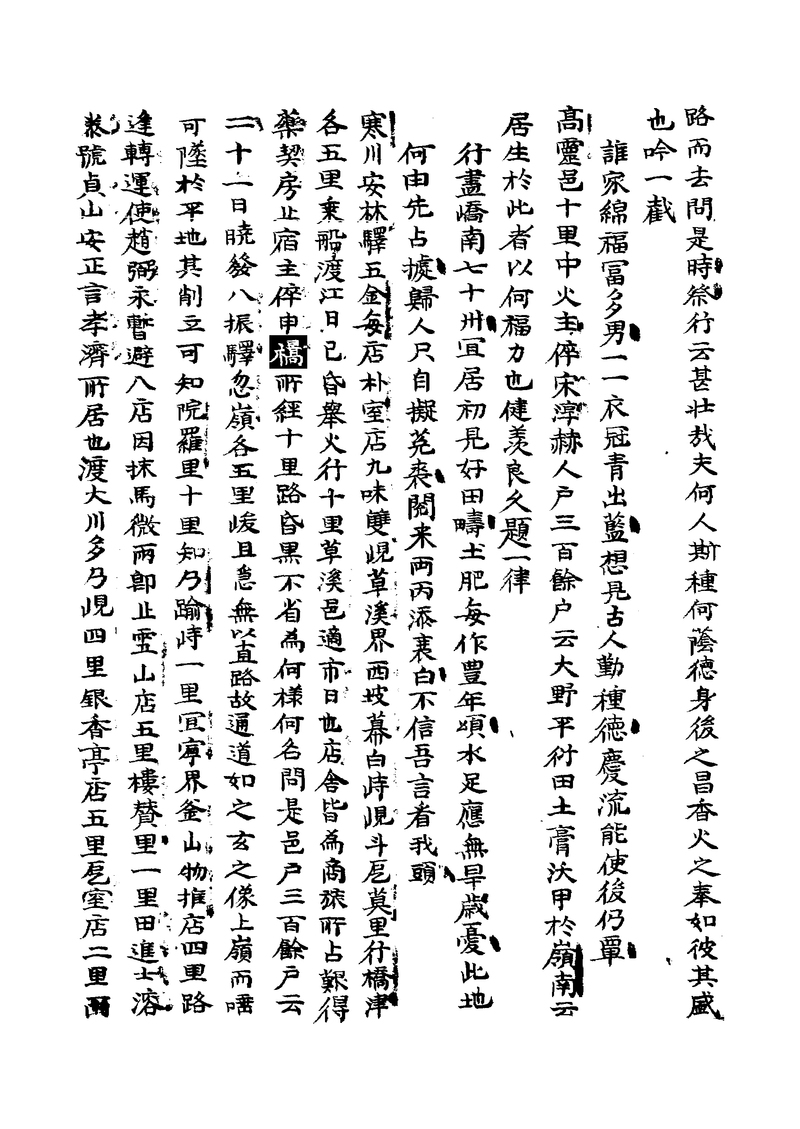 路而去問是時祭行云甚壮哉夫何人斯種何蔭德身後之昌香火之奉如彼其盛
也吟一截
誰家綿福冨多男一一衣冠青出藍想見古人勤種德慶流能使後仍覃
高靈邑十里中火主倅宋淳赫人户三百餘户云大野平衍田土膏沃甲於嶺南云
居生於此者以何福力也健羡良久題一律
行盡嶠南七十州冝居初見好田疇土肥每作豊年頌水足應無旱歲憂此地
何由先占據歸人只自擬菟裘閱来兩丙添衰白不信吾言看我頭
寒川安林驛五金每店朴室店九味雙峴草溪界西坡幕白峙峴斗尾莫里行橋津
各五里乗船渡江日已昏舉火行十里草溪邑適市日也店舍皆為商旅所占艱得
藥契房止宿主倅申橋所經十里路昏黑不省為何様何名問是邑戸三百餘户云
二十一日曉發八振驛忽嶺各五里峻且急無以直路故通道如之玄之像上嶺而唾
可墜於平地其削立可知院羅里十里知乃踰峙一里冝寧界釜山物推店四里路
逢轉運使趙弼永暫避八店因抹馬微雨卽止雲山店五里樓賛里一里田進士溶
号貞山安正言孝濟所居也渡大川多乃峴四里银香亭店五里尾室店二里